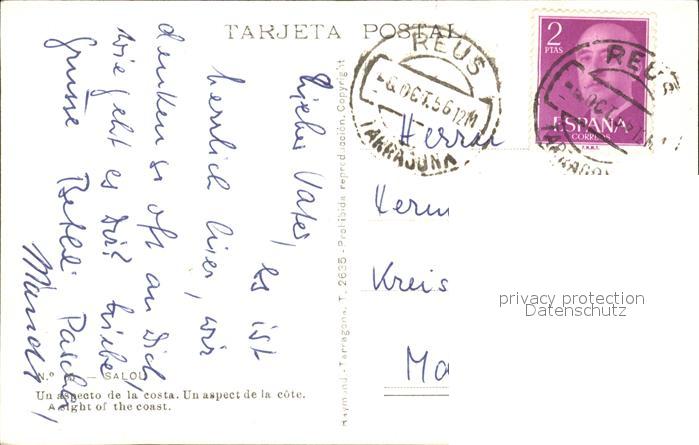 TARJETA POSTAL
REUS
-6 OCT.56 12M
TARRAGONA
2
PTAS
ESPAÑA
CORREOS
F.N.M.T.
REUS
OCT
TARRAGON
Lieber Vater, es ist
herrlich hier, wir
denken so oft an Dich,
wie geht es Dir? Liebe
Grüsse
Raymond.-Tarragona, T. 2635-Prohibida reproducción. Copyright
Herrn
Herm
Kreis
Ma
privacy protection
Datenschutz
N.º — SALOU
Un aspecto de la costa. Un aspect de la côte.
A sight of the coast.